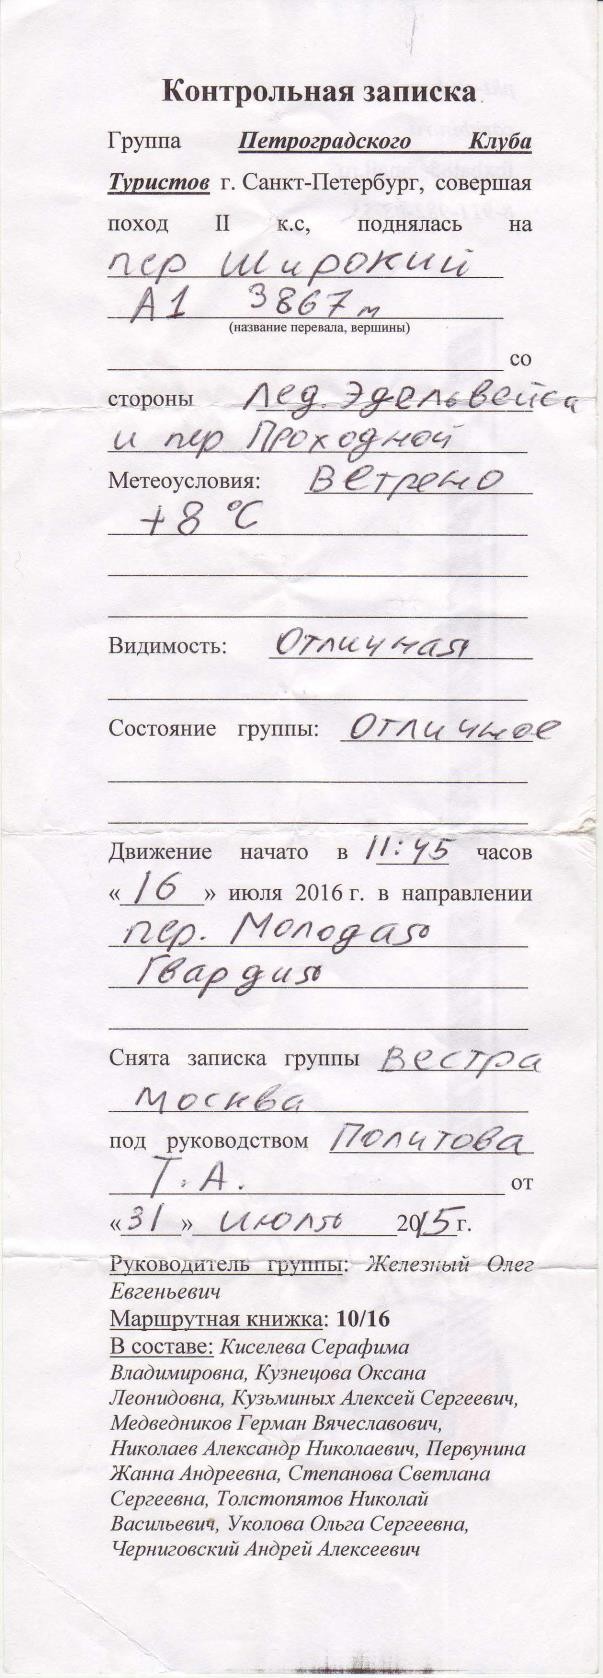 Контрольная записка
Группа Петроградского Клуба
Туристов г. Санкт-Петербург, совершая
поход II к.с, поднялась на
пер Широкий
А1 3867 м
(название перевала, вершины)
со
стороны лед. Эдельвейса
и пер Проходной
Метеоусловия: Ветрено
+8 °C
Видимость: Отличная
Состояние группы: Отличное
Движение начато в 11:45 часов
«16» июля 2016 г. в направлении
пер. Молодая
Гвардия
Снята записка группы Вестра
Москва
под руководством Политова
Т.А. от
«31» июля 2015 г.
Руководитель группы: Железный Олег
Евгеньевич
Маршрутная книжка: 10/16
В составе: Киселева Серафима
Владимировна, Кузнецова Оксана
Леонидовна, Кузьминых Алексей Сергеевич,
Медведников Герман Вячеславович,
Николаев Александр Николаевич, Первунина
Жанна Андреевна, Степанова Светлана
Сергеевна, Толстопятов Николай
Васильевич, Уколова Ольга Сергеевна,
Черниговский Андрей Алексеевич